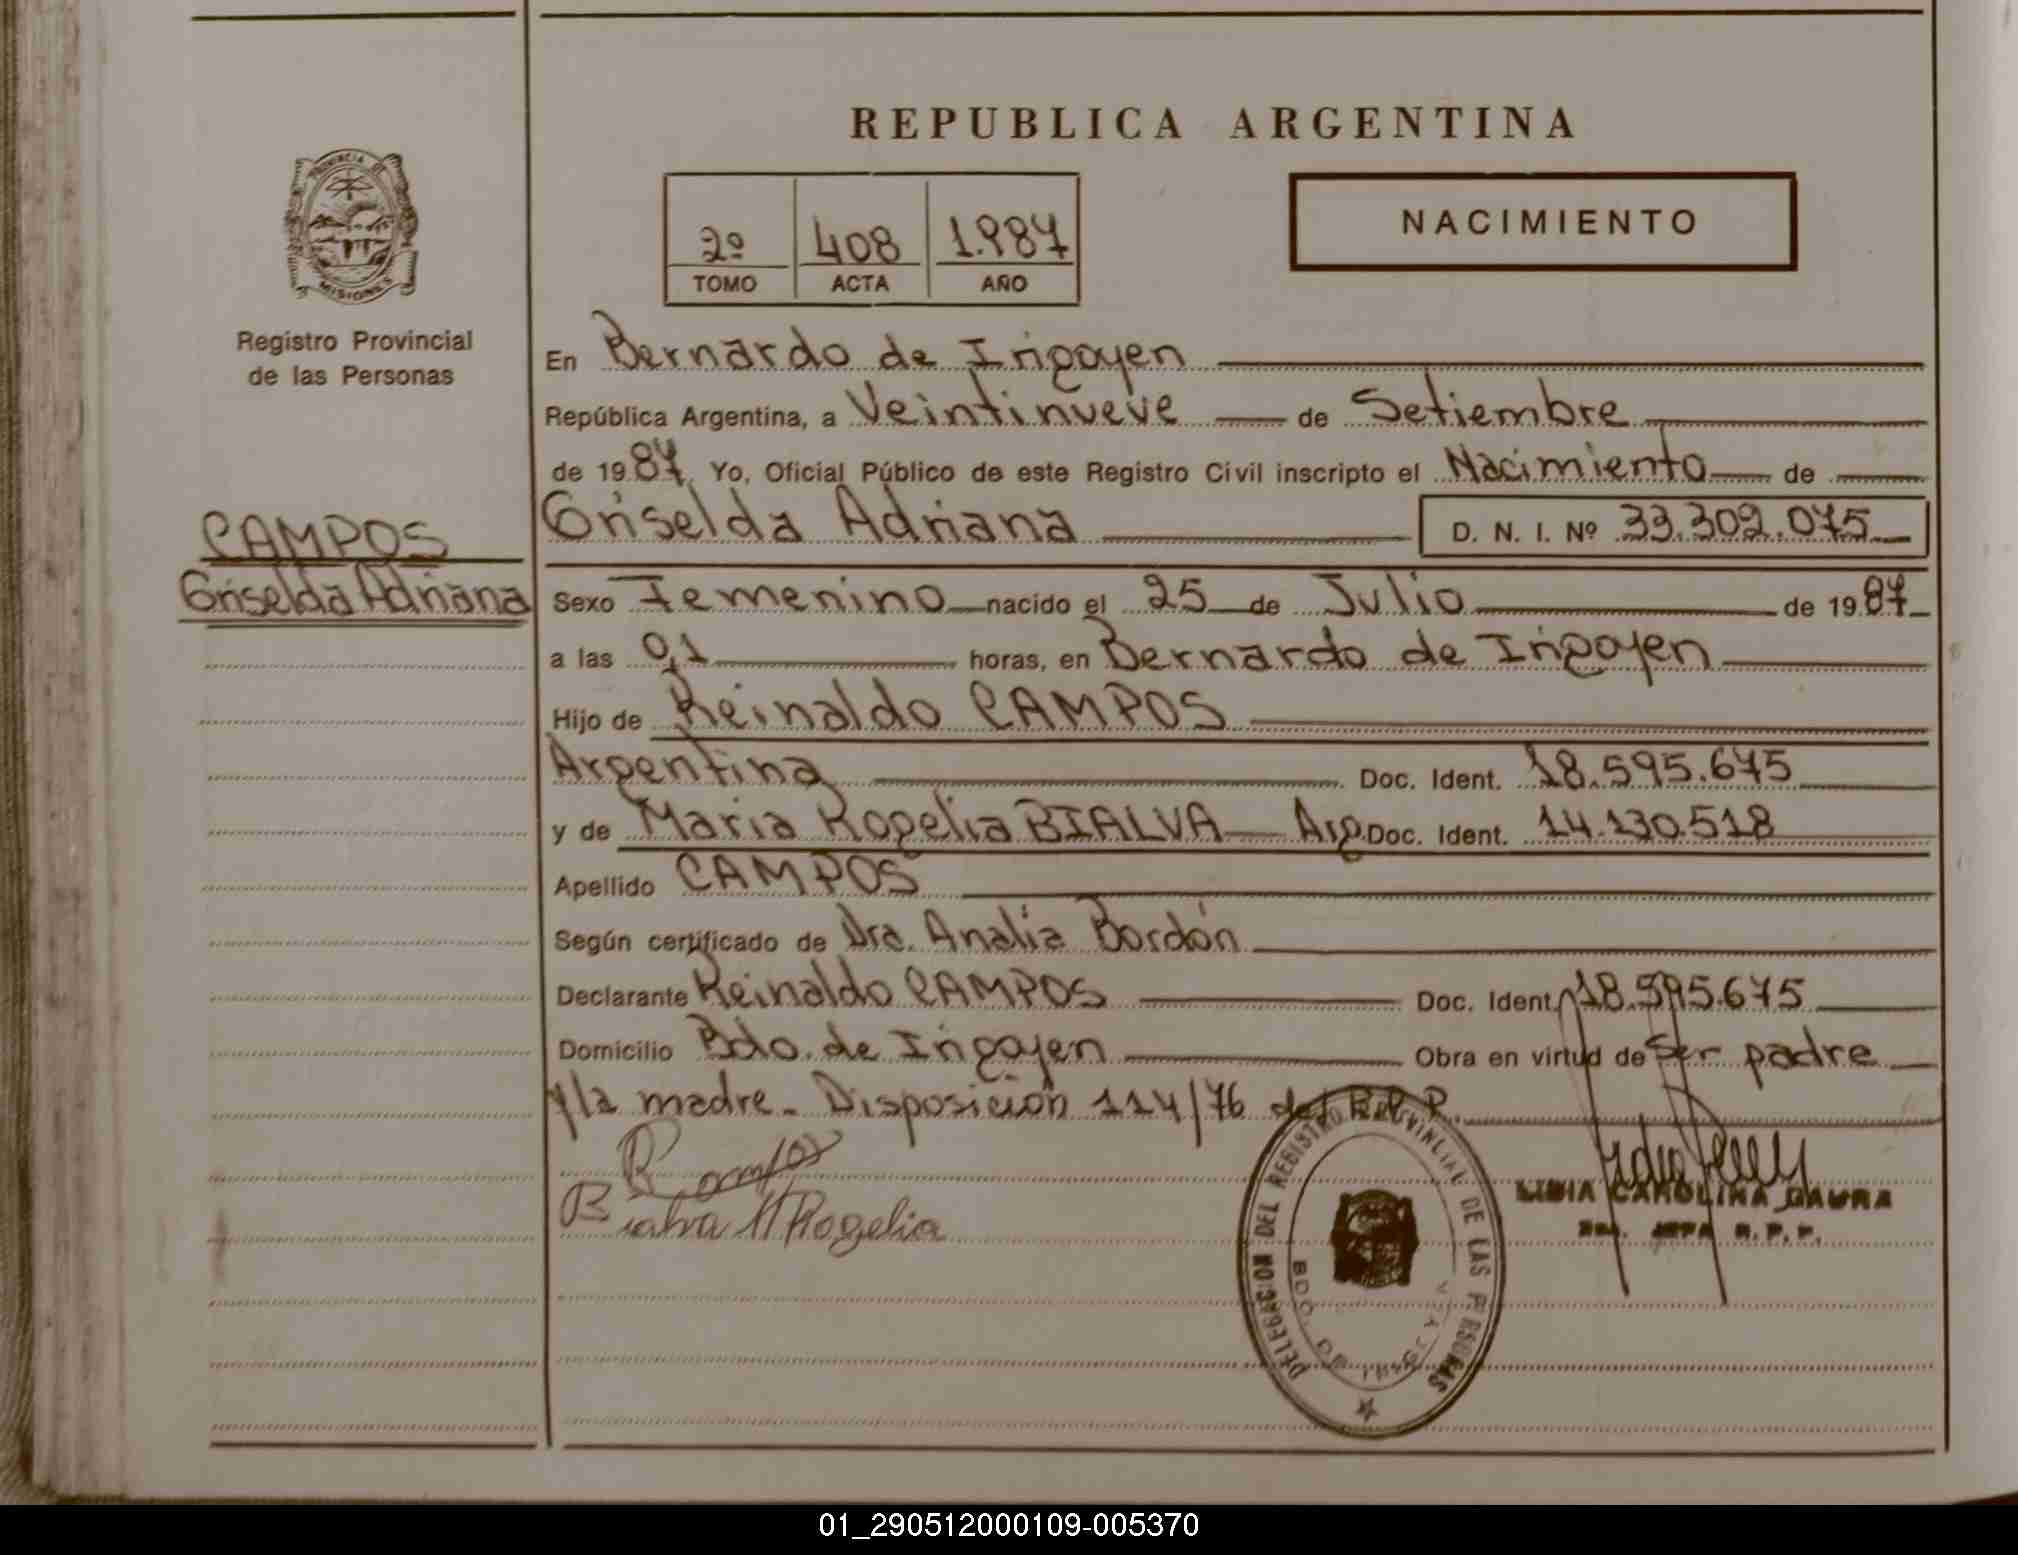 REPUBLICA ARGENTINA
PROVINCIA DE
MISIONES
Registro Provincial
de las Personas
2º 408 1.987
TOMO ACTA AÑO
NACIMIENTO
En Bernardo de Irigoyen
República Argentina, a Veintinueve de Setiembre
de 19 87 Yo, Oficial Público de este Registro Civil inscripto el Nacimiento de
CAMPOS
Griselda Adriana
Griselda Adriana D. N. I. Nº 33.302.075
Sexo Femenino nacido el 25 de Julio de 19 87
a las 0,1 horas, en Bernardo de Irigoyen
Hijo de Reinaldo CAMPOS
Argentina Doc. Ident. 18.595.675
y de Maria Rogelia BIALVA Arg. Doc. Ident. 14.130.518
Apellido CAMPOS
Según certificado de Dra. Analia Bordón
Declarante Reinaldo CAMPOS Doc. Ident. 18.595.675
Domicilio Bdo. de Irigoyen Obra en virtud de Ser padre
y la madre. Disposición 114/76 del R.P.P.
R Campos
Bialva M Rogelia
DELEGASION DEL REGISTRO PROVINCIAL DE LAS PERSONAS
BDO. DE IRIGOYEN
LIDIA CAROLINA GAURA
JEFA R. P. P.
01_290512000109-005370